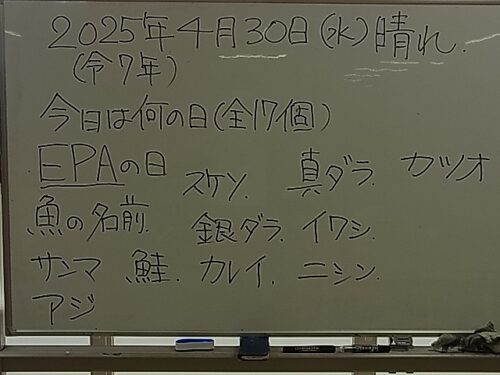 2025年4月30日(水)晴れ.
(令7年)
今日は何の日(全17個)
EPAの日
スケソ. 真ダラ. カツオ
魚の名前. 銀ダラ. イワシ.
サンマ 鮭. カレイ. ニシン.
アジ